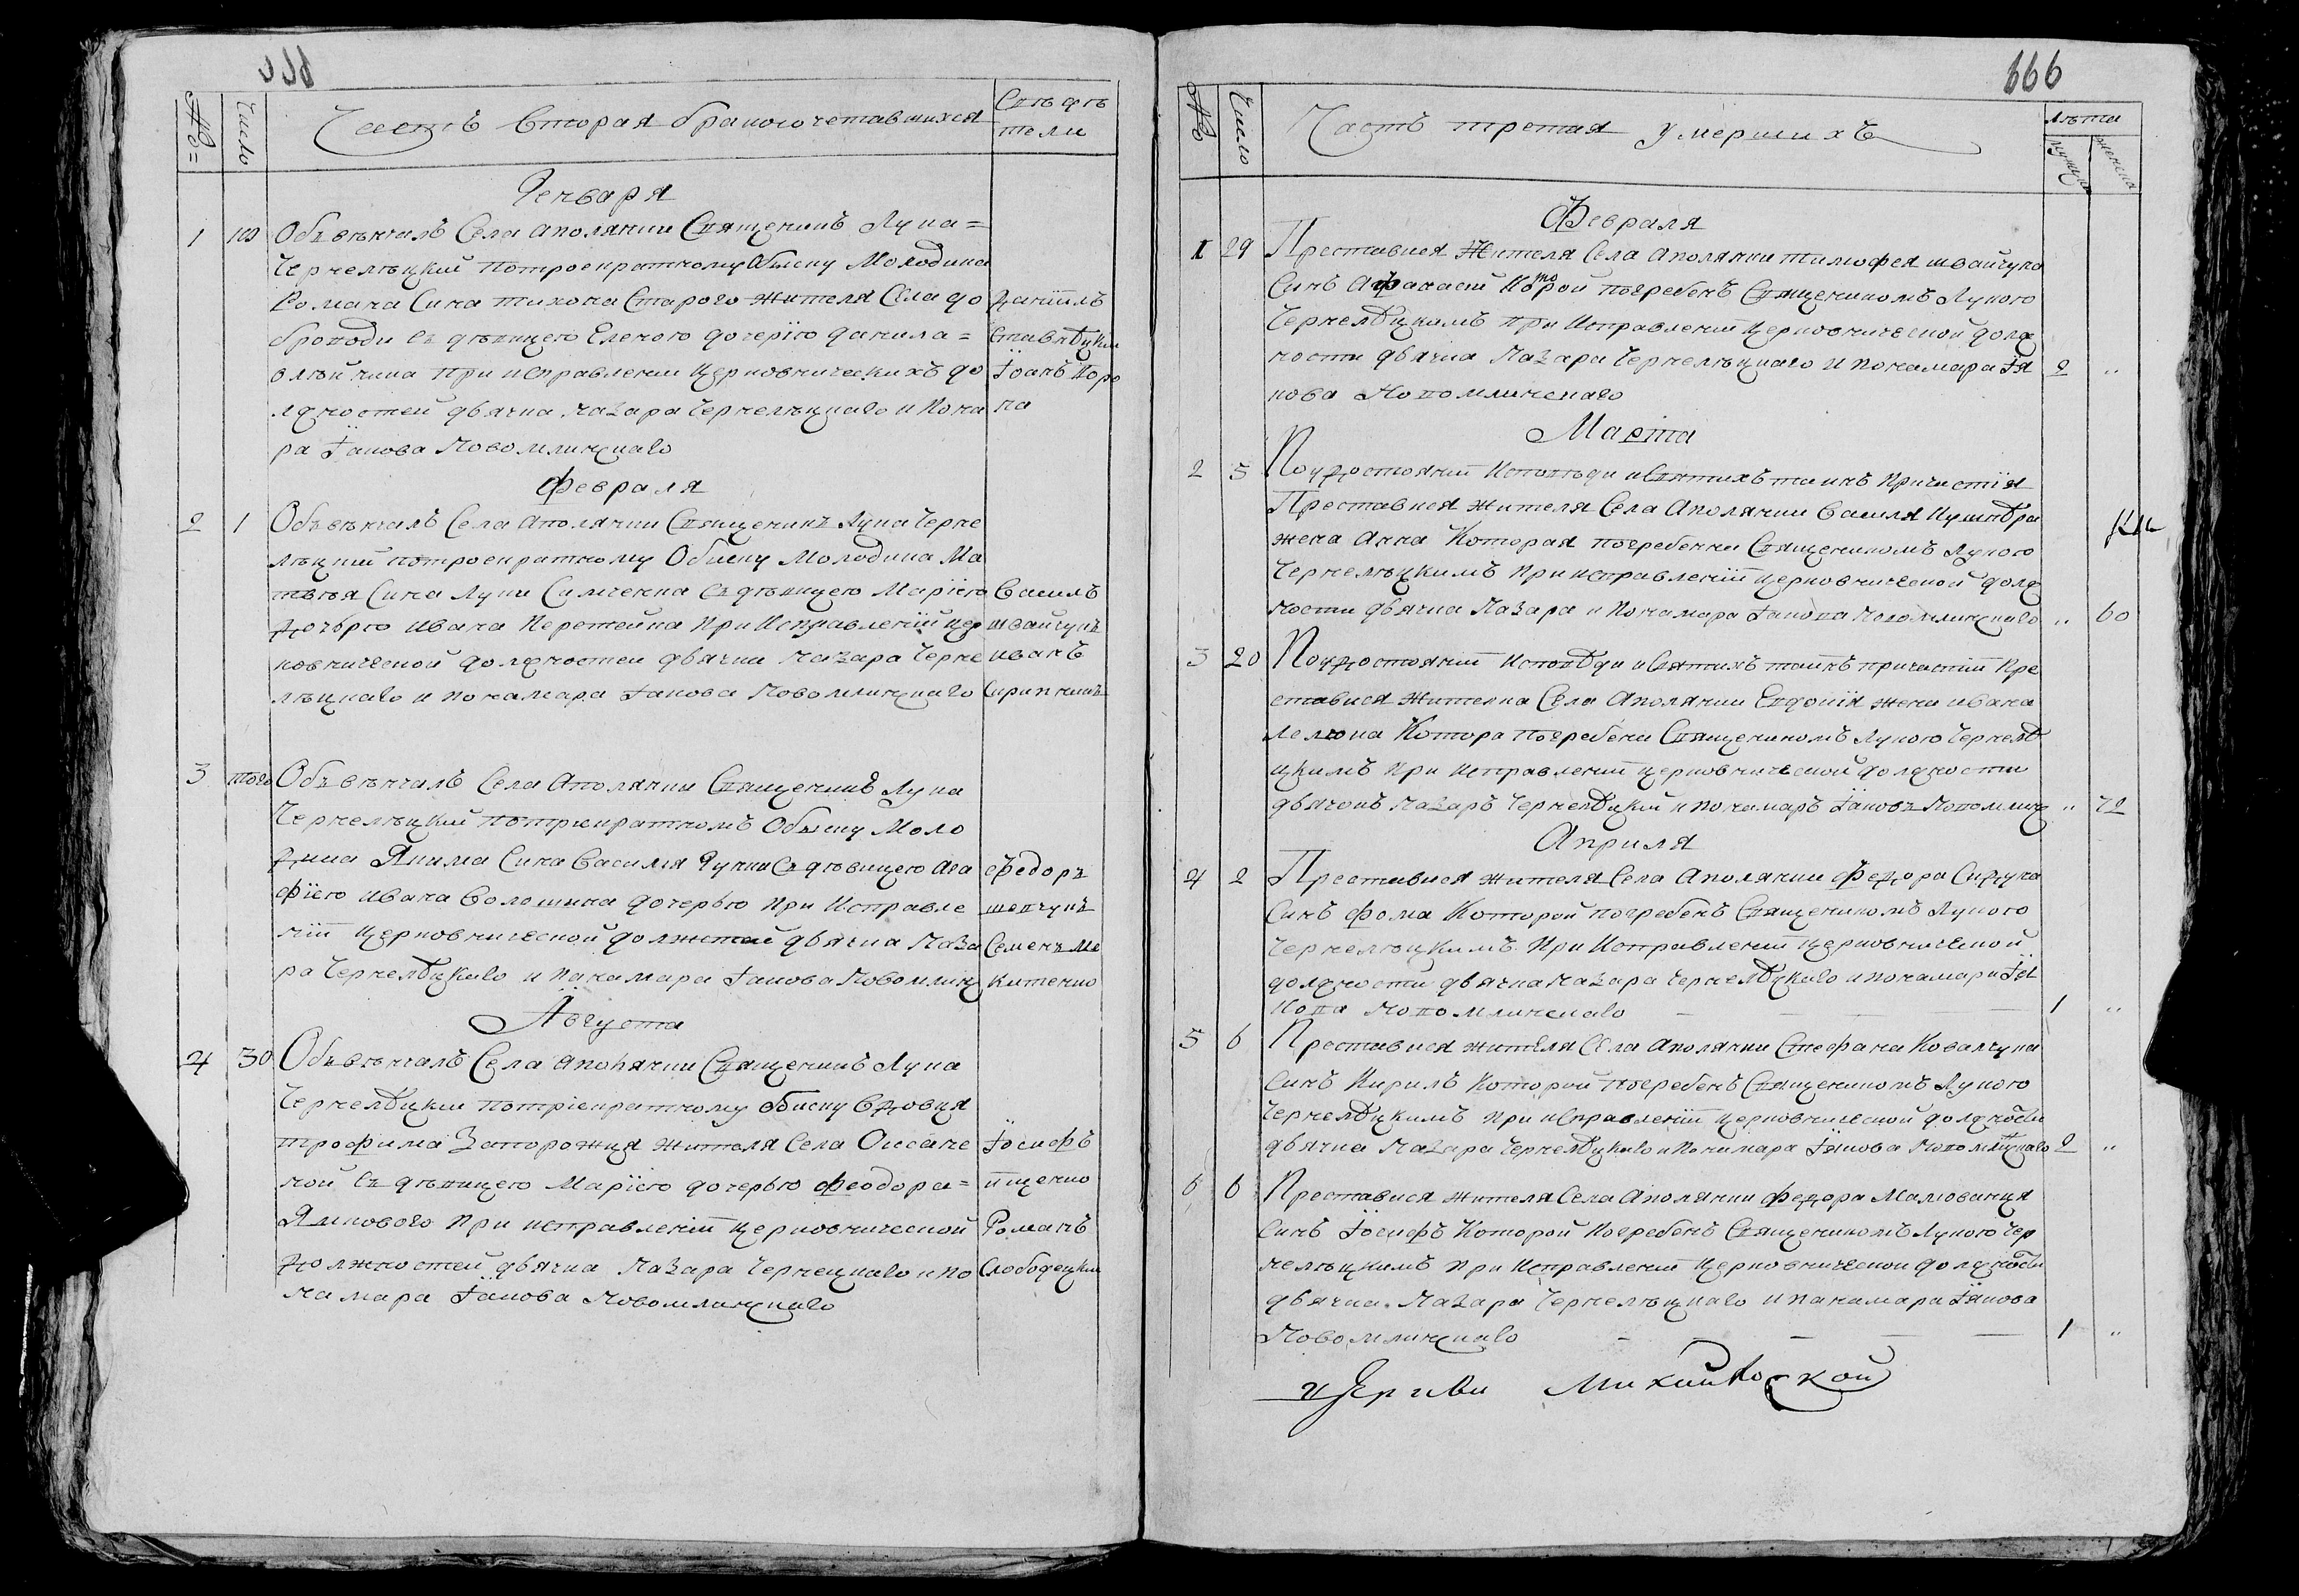 №=
Число
Часть Вторая бракосочетавшихся
Свѣдѣ
тели
Генваря
1
10
Обвѣнчалъ Села Аполянки Священикъ Лука=
Чернелѣцкий потроекратному Обиску Молодика
Романа Сина тихона Старого Жителя Села до
Даніилъ
броводи Съ дѣвицею Еленою дочерїю данила=
Ставѣцкий
олѣйника При исправлении Церковническихъ до
Іоанъ Коро
лжностей двячка Назара Чернелѣцкаго и Пона
ла
ра Іакова Новомлинскаго
Февраля
2
1
Обвѣнчалъ Села Аполянки Священикъ Лука Черне
лѣцкий потроекратному Обиску Молодика Ма
твѣя Сина Луки Симченка Съ дѣвицею Марїею
Василъ
дочьрю ивана Перетейка При Исправленїй цер
швайчукъ
ковнической должностеи двячка Назара Черне
иванъ
лѣцкаго и понамара Іакова Новомлинскаго
Скрипникъ
3
того
Обвѣнчалъ Села Аполянки Священикъ Лука
Чернелѣцкий потрикратномъ Обиску Моло
дика Якима Сина Василия Гучка Съ дѣвицею Ага
Федоръ
фїею ивана Волошина дочерью при Исправле
шевчукъ
нїи церковнической должстей двячка Наза
Семенъ Ме
ра Чернелѣцкаго и панамара Іакова Новомлинс
китенко
Августа
4
30
Обвѣнчалъ Села Аполянки Священикъ Лука
Чернелѣцкий потрїекратному обиску вдовця
трофима Запорожця жителя Села Оксане
Іосифъ
ной Съ дѣвицею Марїею дочерью феодора=
ищенко
Ямкового При исправленїй церковнической
Романъ
должностей двячка Назара Чернецкаго и по
Слободецкий
намара Іакова Новомлинскаго
666
№
Число
Часть третая умершихъ
лѣта
мужеска
женска
Февраля
1
29
Преставися Жителя Села Аполянки тимофея швайчука
Синъ Афанасій Которой погребенъ Священикомъ Лукою
Чернелѣцкимъ при Исправленїи церковнической долж
ности двячка Назара Чернелѣцкаго и понамара Їя
2
"
кова Новомлинскаго
Марта
2
5
Поудостоянїи Исповѣди и Святихъ таинъ причастїя
Преставися жителя Села Аполянки Василя
жена Анна Которая погребенна Священикомъ Лукою
Чернелѣцкимъ При исправленїи церковнической долж
ности двячка Назара и Понамара Іакова Новомлинскаго
"
60
3
20
Поудостоянїи Исповѣди и Святихъ таинъ причастїи Пре
ставися жителка Села Аполянки Евдокїя жена ивана
Лелюка Котора погребена Священикомъ Лукою Чернелѣ
цкимъ при исправленїи церковнической должности
двячокъ Назаръ Чернелѣцкий и понамаръ Іаковъ Новомлинс
"
72
Априля
4
2
Преставися жителя Села Аполянки федора Сидука
Синъ фома Которой погребенъ Священикомъ Лукою
Чернелѣцкимъ При Исправленїи церковнической
должности двячка Назара Чернелѣцкаго и понамара Їя
кова Новомлинскаго
1
"
5
6
Преставися жителя Села Аполянки Стефана Ковалчука
Синъ Кирилъ Которой погребенъ Священикомъ Лукою
Чернелѣцкимъ при исправленїи церковнической должности
двячка Назара Чернелѣцкаго и Понамара Іякова Новомлинскаго
2
"
6
6
Преставися жителя Села Аполянки федора Малованця
Синъ Іосифъ Которой погребенъ Священикомъ Лукою Чер
нелѣцкимъ при Исправленїи Церковнической должности
двячка Назара Чернелѣцкаго и панамара Іякова
Новомлинскаго
1
"
церкви Михайловской